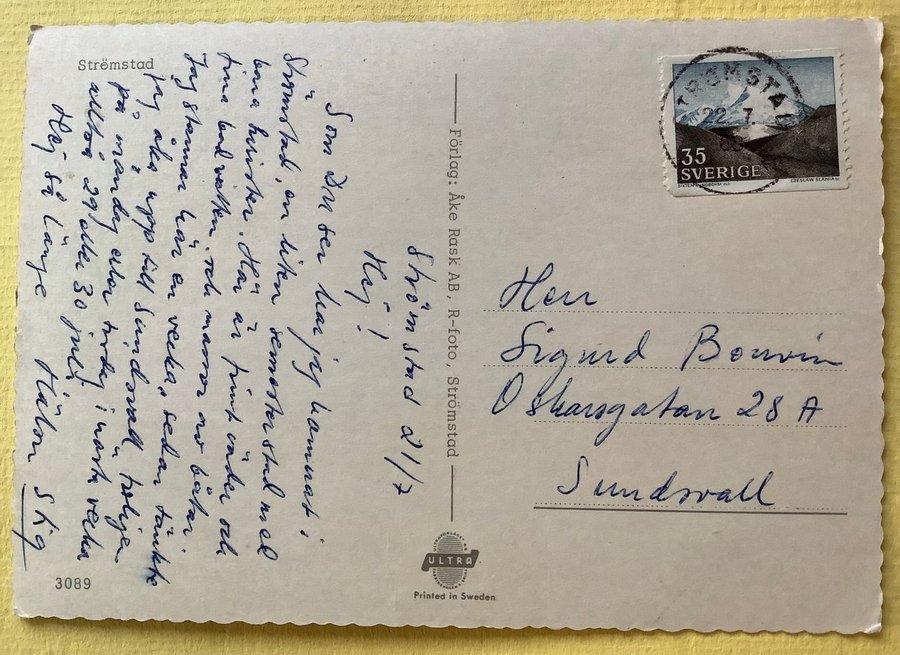 Strömstad
Strömstad 21/7
Hej!
Som Du ser har jag kommit i
Strömstad, en liten semesterstad med
bara turister. Här är fint väder och
fina badvatten och massor av båtar.
Jag stannar här en vecka, sedan tänkte
jag åka upp till Sundsvall troligen
på måndag eller tisdag i nästa vecka
alltså 29 eller 30 juli.
Hej så länge Hälsn Stig
3089
Förlag: Åke Rask AB, R-foto, Strömstad
ULTRA
Printed in Sweden
STRÖMSTAD
22. 7.
35
SVERIGE
CZESLAW SLANIA
Herr
Sigurd Bouvin
Oskarsgatan 28 A
Sundsvall